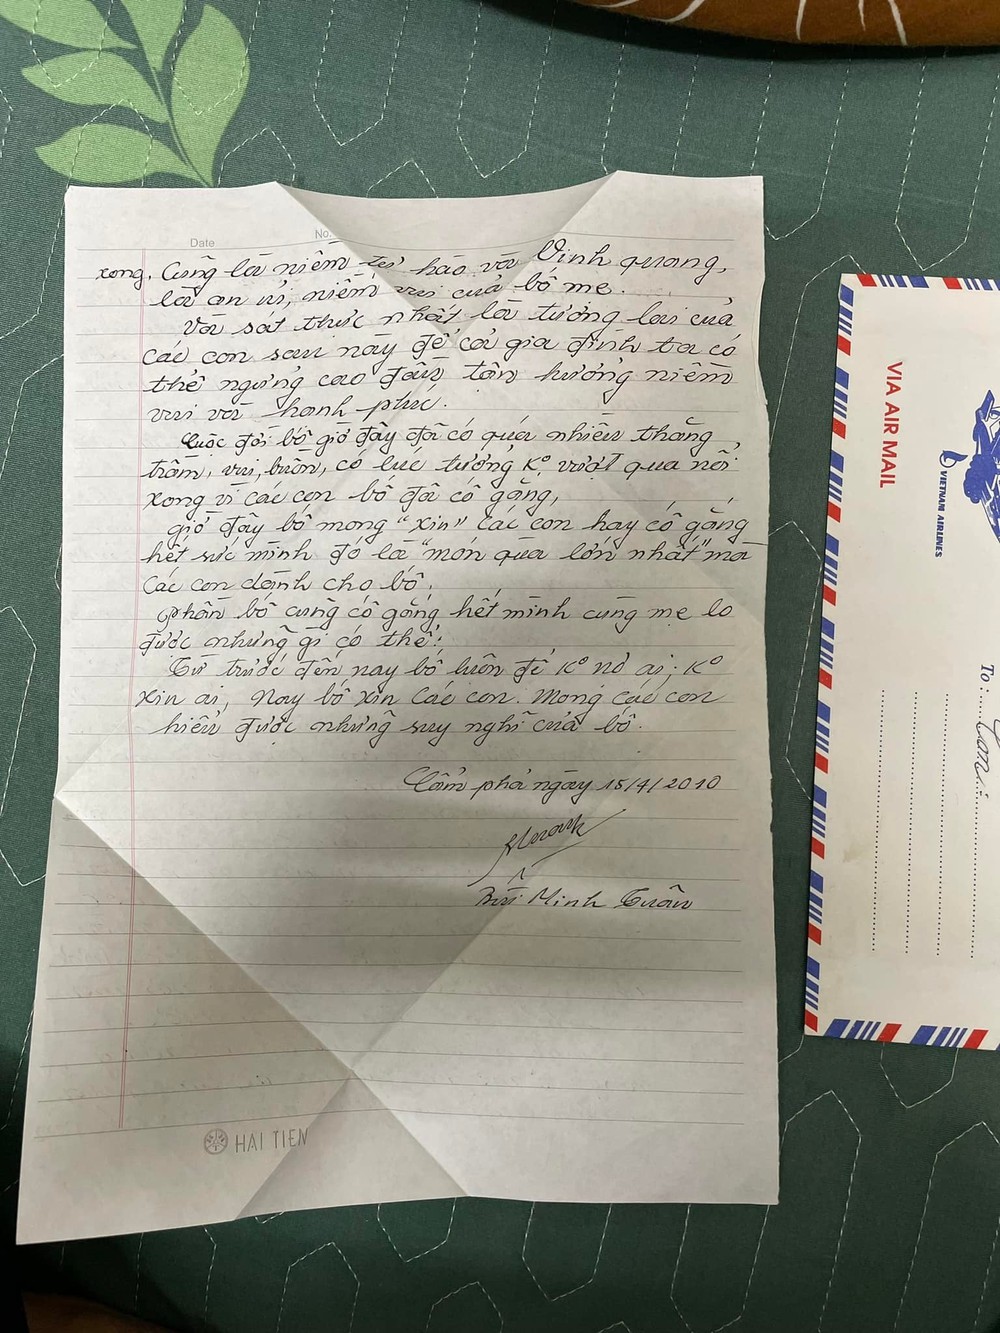 Date
No.
xong. Cũng là niềm tự hào và Vinh quang,
là an ủi, niềm vui của bố mẹ.
Và sát thực nhất là tương lai của
các con sau này để cả gia đình ta có
thể ngửng cao đầu, tận hưởng niềm
vui và hạnh phúc.
Cuộc đời bố giờ đây đã có quá nhiều thăng
trầm, vui, buồn, có lúc tưởng Kº vượt qua nổi
xong vì các con bố đã cố gắng,
giờ đây bố mong "xin" các con hãy cố gắng
hết sức mình đó là "món quà lớn nhất" mà
các con dành cho bố.
Phần bố cũng cố gắng hết mình cùng mẹ lo
được những gì có thể!
Từ trước đến nay bố luôn để Kº nợ ai; Kº
xin ai, Nay bố xin các con. Mong các con
hiểu được những suy nghĩ của bố.
Cẩm phả ngày 15/4/2010
Bùi Minh Tuân
HẢI TIẾN
VIA AIR MAIL
VIETNAM AIRLINES
To: